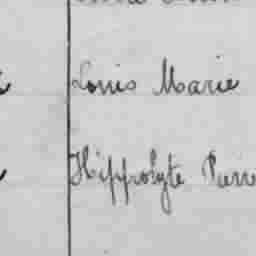 Louis Marie
Hippolyte Pierre